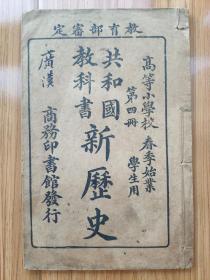 教育部審定
高等小學校 春季始業
第四冊 學生用
共和國
教科書
新歷史
商務印書館發行